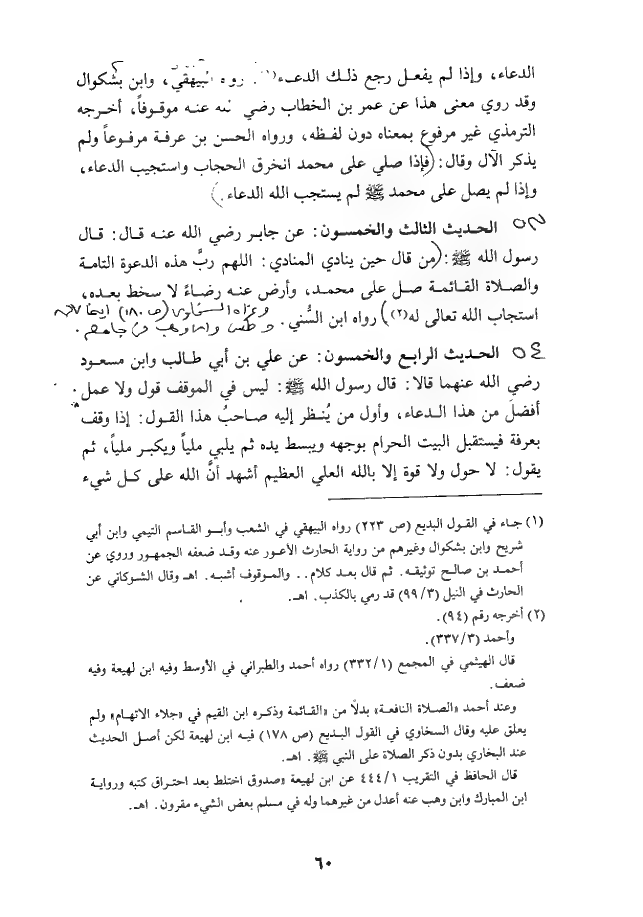 الدعاء، وإذا لم يفعل رجع ذلك الدعاء(١). رواه البيهقي، وابن بشكوال
وقد روي معنى هذا عن عمر بن الخطاب رضي الله عنه موقوفاً، أخرجه
الترمذي غير مرفوع بمعناه دون لفظه، ورواه الحسن بن عرفة مرفوعاً ولم
يذكر الآل وقال: (فإذا صلي على محمد انخرق الحجاب واستجيب الدعاء،
وإذا لم يصل على محمد ﷺ لم يستجب الله الدعاء.)
٥٣ الحديث الثالث والخمسون: عن جابر رضي الله عنه قال: قال
رسول الله ﷺ: (من قال حين ينادي المنادي: اللهم ربَّ هذه الدعوة التامة
والصلاة القائمة صل على محمد، وأرض عنه رضاءً لا سخط بعده،
استجاب الله تعالى له(٢)) رواه ابن السُّني. وعزاه السخاوي (ص ١٨٠) أيضا
٥٤ الحديث الرابع والخمسون: عن علي بن أبي طالب وابن مسعود
رضي الله عنهما قالا: قال رسول الله ﷺ: ليس في الموقف قول ولا عمل
أفضلَ من هذا الدعاء، وأول من يُنظر إليه صاحبُ هذا القول: إذا وقف
بعرفة فيستقبل البيت الحرام بوجهه ويبسط يده ثم يلبي ملياً ويكبر ملياً، ثم
يقول: لا حول ولا قوة إلا بالله العلي العظيم أشهد أنَّ الله على كل شيء
(١) جاء في القول البديع (ص ٢٢٣) رواه البيهقي في الشعب وأبو القاسم التيمي وابن أبي
شريح وابن بشكوال وغيرهم من رواية الحارث الأعور عنه وقد ضعفه الجمهور وروي عن
أحمد بن صالح توثيقه. ثم قال بعد كلام.. والموقوف أشبه. اهـ وقال الشوكاني عن
الحارث في النيل (٩٩/٣) قد رمي بالكذب. اهـ.
(٢) أخرجه رقم (٩٤).
وأحمد (٣٣٧/٣).
قال الهيثمي في المجمع (٣٣٢/١) رواه أحمد والطبراني في الأوسط وفيه ابن لهيعة وفيه
ضعف.
وعند أحمد «الصلاة النافعة» بدلًا من «القائمة وذكره ابن القيم في «جلاء الاتهام» ولم
يعلق عليه وقال السخاوي في القول البديع (ص ١٧٨) فيه ابن لهيعة لكن أصل الحديث
عند البخاري بدون ذكر الصلاة على النبي ﷺ. اهـ.
قال الحافظ في التقريب ٤٤٤/١ عن ابن لهيعة «صدوق اختلط بعد احتراق كتبه ورواية
ابن المبارك وابن وهب عنه أعدل من غيرهما وله في مسلم بعض الشيء مقرون. اهـ.
٦٠